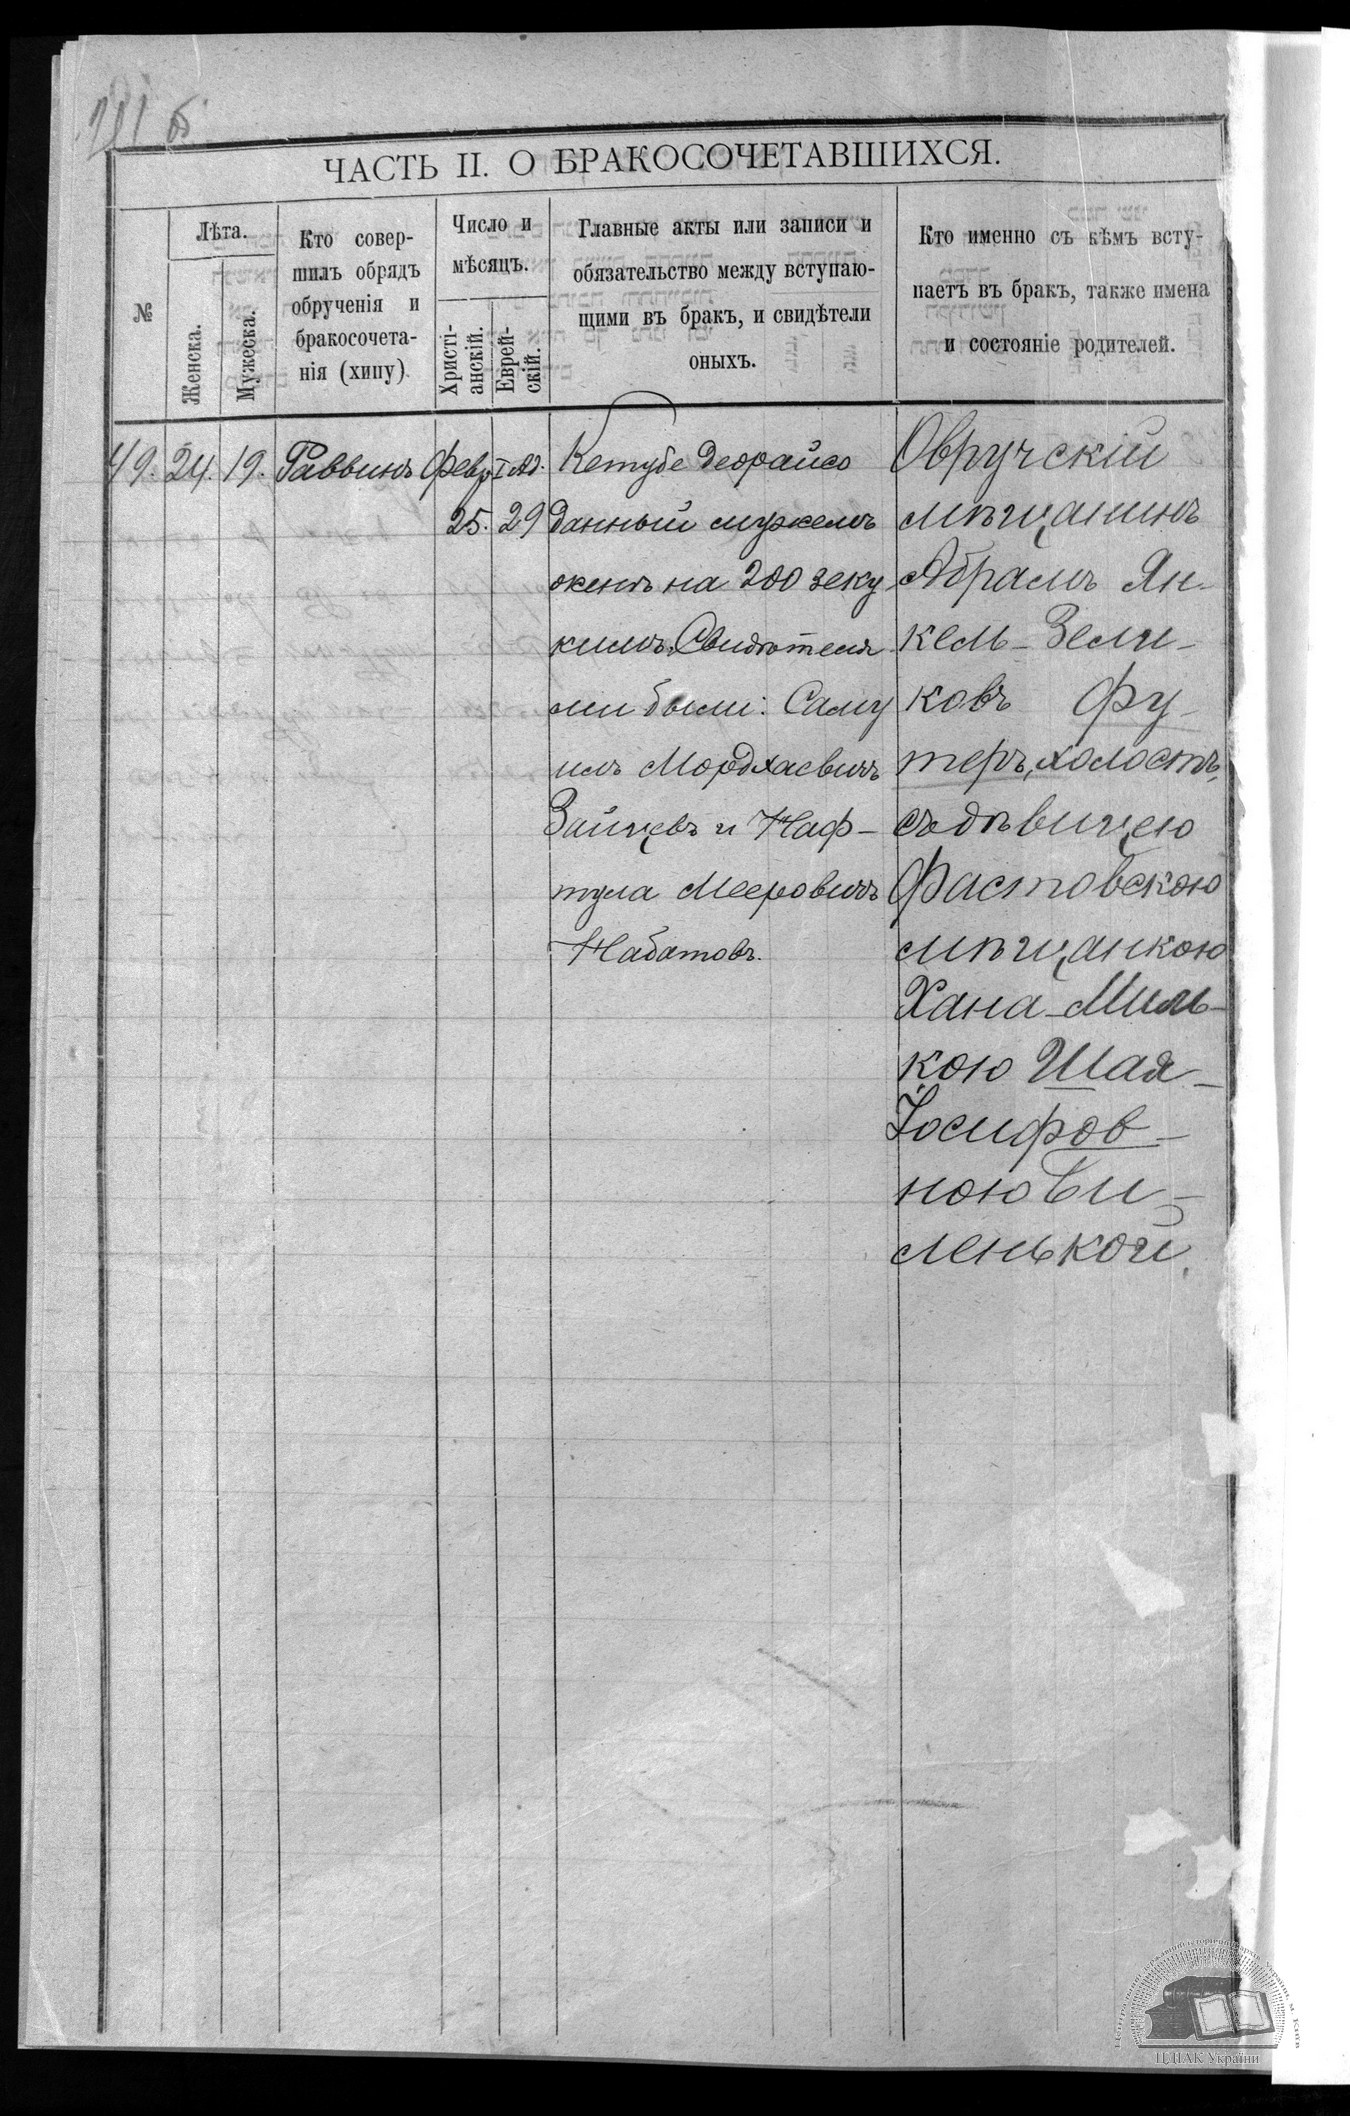 211 б
ЧАСТЬ II. О БРАКОСОЧЕТАВШИХСЯ.
№
Лѣта.
Женска.
Мужеска.
Кто совер-
шилъ обрядъ
обрученія и
бракосочета-
нія (хипу)
Число и
мѣсяцъ.
Христі-
анскій.
Еврей-
скій.
Главные акты или записи и
обязательство между вступаю-
щими въ бракъ, и свидѣтели
оныхъ.
Кто именно съ кѣмъ всту-
паетъ въ бракъ, также имена
и состояніе родителей.
49. 24. 19. Раввинъ Февр. I Ад.
25. 29
Кетубе деорайсо
данный мужемъ
женѣ на 200 зеку
кимъ. Свидѣтеля
ми были: Саму
илъ Мордхаевичъ
Зайцевъ и Наф-
тула Мееровичъ
Набатовъ.
Овручскій
мѣщанинъ
Абрамъ Ян-
кель-Зели-
ковъ Фу-
теръ, холостъ,
съ дѣвицею
Фастовскою
мѣщанкою
Хана-Миль-
кою Шая-
Іосифов-
ною Би-
ленькой.
ЦДІАК України